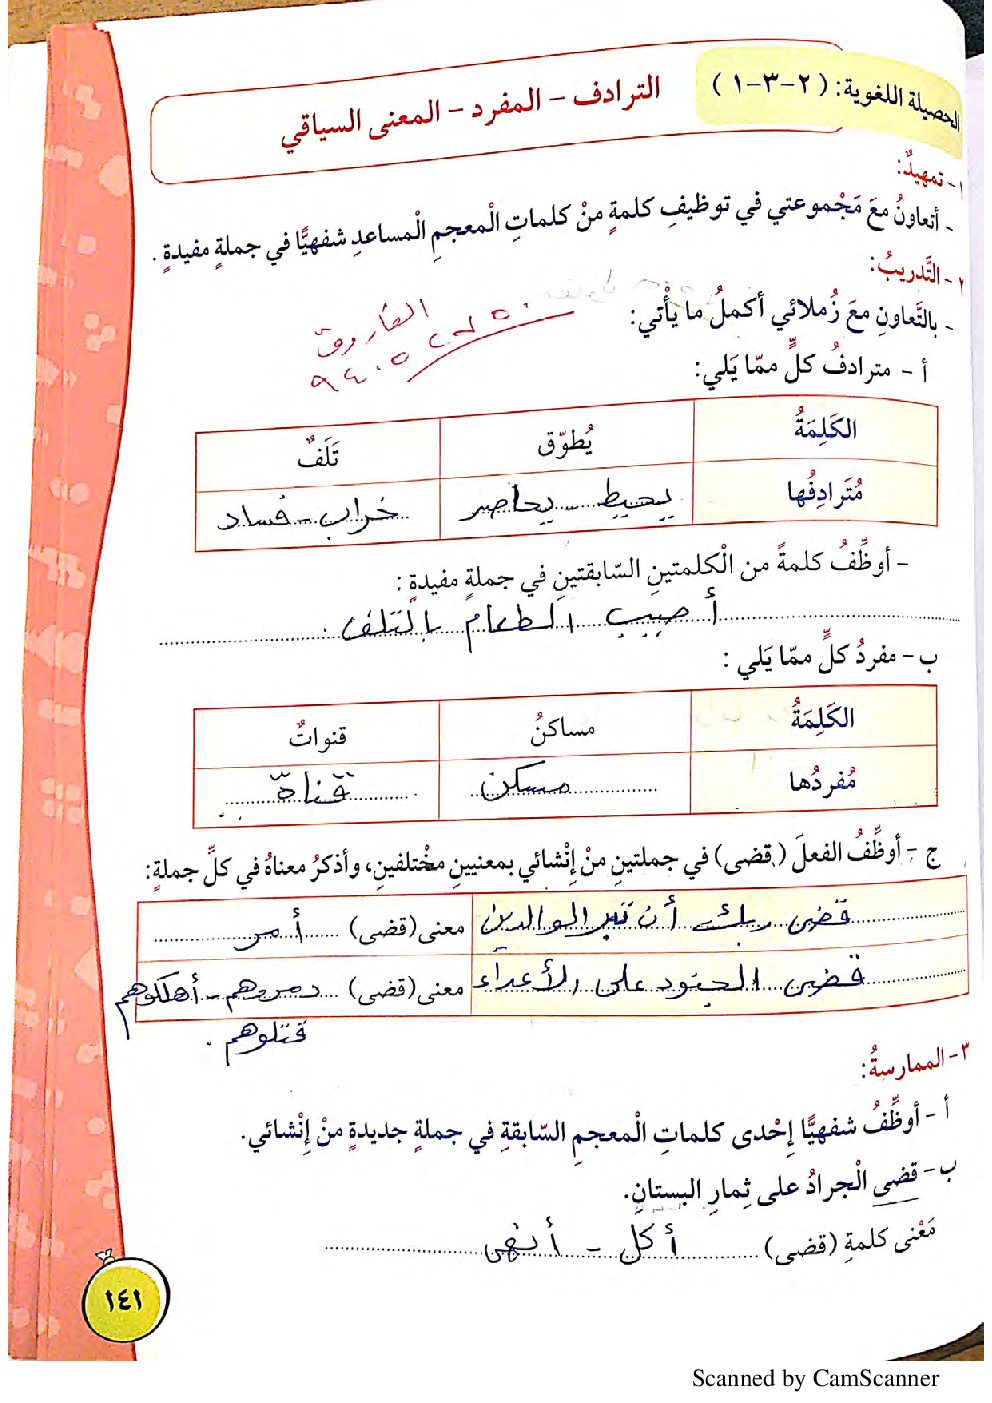 الحصيلة اللغوية: (٢-٣-١)
الترادف - المفرد - المعنى السياقي
١- تمهيدٌ:
- أتعاونُ معَ مَجْموعتي في توظيفِ كلمةٍ منْ كلماتِ الْمعجمِ الْمساعدِ شفهيًّا في جملةٍ مفيدةٍ .
٢- التَّدريبُ:
- بالتَّعاونِ معَ زُملائي أكملُ ما يأْتي:
الفاروق
أ - مترادفُ كلٍّ ممّا يَلي:
الكَلِمَةُ يُطوّق تَلَفٌ
مُتَرادِفُها يحيط - يحاصر خراب - فساد
- أوظِّفُ كلمةً من الْكلمتينِ السّابقتينِ في جملةٍ مفيدةٍ :
أصيب الطعام بالتلف .
ب - مفردُ كلٍّ ممّا يَلي :
الكَلِمَةُ مساكنُ قنواتٌ
مُفردُها مسكن قناة
ج - أوظِّفُ الفعلَ (قضى) في جملتينِ منْ إنْشائي بمعنيينِ مخْتلفينِ، وأذكرُ معناهُ في كلِّ جملةٍ:
قضى ربك أن تبر الوالدين معنى (قضى) أمر
قضى الجنود على الأعداء معنى (قضى) دمروهم - أهلكوهم
قتلوهم .
٣- الممارسةُ:
أ - أوظِّفُ شفهيًّا إحْدى كلماتِ الْمعجمِ السّابقةِ في جملةٍ جديدةٍ منْ إنْشائي.
ب - قضى الْجرادُ على ثِمارِ البستانِ.
مَعْنى كلمةِ (قضى) أكل - أنهى
١٤١
Scanned by CamScanner